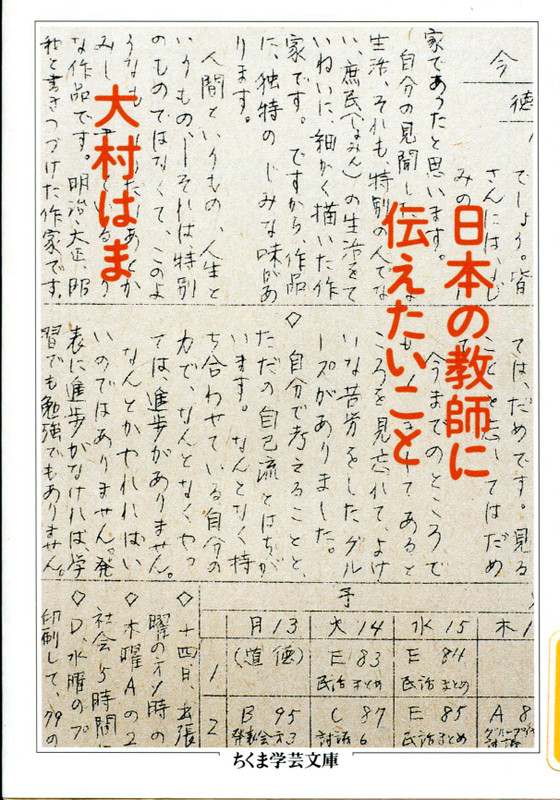 日本の教師に
伝えたいこと
大村はま
今
徳
でしょう。皆
さんには、
みの
家であったと思います。
自分の見聞した
生活、それも、特別の人でな
い、庶民(しょみん)の生活をて
いねいに、細かく描いた作
家です。ですから、作品
に、独特のじみな味があ
ります。
人間というもの、人生と
いうもの、―それは特別
のものではなくて、このよ
な作品です。明治・大正、昭
和と書きつづけた作家です。
ては、だめです。見る
ことを忘れてはだめ
今までのところで
あると
ころを見忘れて、よけ
いな苦労をしたグル
ープがありました。
◇ 自分で考えることと、
ただの自己流とはちが
います。なんとなく持
ち合わせている自分の
力で、なんとなくやっ
ては進歩がありません。
なんとかやれればい
いのではありません。発
表に進歩がなければ、学
習でも勉強でもありません。
予
月13 火14 水15 木1
1 (道徳) E 83 E 84
民話まとめ 民話まとめ
2 B 95 C 87 E 85 A 8
民話まとめ
◇十四日、出張
◇木曜Aの2
社会5時間に
◇D、水曜のプ
印刷して、79の
ちくま学芸文庫